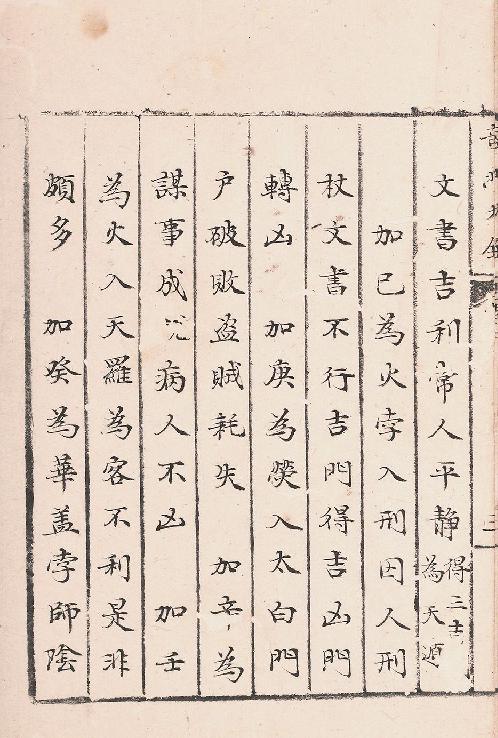 文書吉利常人平靜得三吉為天遁
加已為火孛入刑因人刑
杖文書不行吉門得吉凶門
轉凶 加庚為熒入太白門
户破敗盗賊耗失 加辛為
謀事成病人不凶 加壬
為火入天羅為客不利是非
頗多 加癸為華盖孛師陰